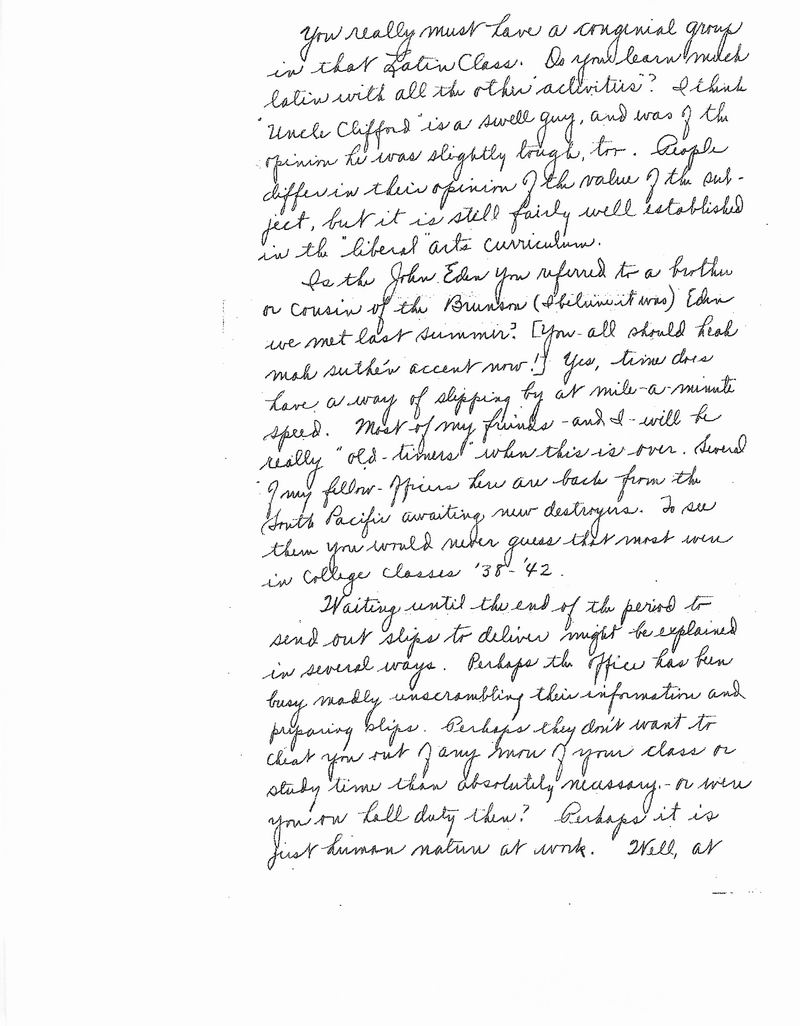 You really must have a congenial group
in that Latin Class. Do you learn much
latin with all the other "activities"? I think
"Uncle Clifford" is a swell guy, and was of the
opinion he was slightly tough, too. People
differ in their opinion of the value of the sub-
ject, but it is still fairly well established
in the "liberal" arts curriculum.
Is the John Eden you referred to a brother
or cousin of the Brunson (I believe it was) Eden
we met last summer? [You-all should heah
mah suthe'n accent now!] Yes, time does
have a way of slipping by at mile-a-minute
speed. Most of my friends - and I - will be
really "old-timers" when this is over. Several
of my fellow-officers here are back from the
South Pacific awaiting new destroyers. To see
them you would never guess that most were
in College Classes '38-'42.
Waiting until the end of the period to
send out slips to deliver might be explained
in several ways. Perhaps the office has been
busy madly unscrambling their information and
preparing slips. Perhaps they don't want to
cheat you out of any more of your class or
study time than absolutely necessary. - or were
you on hall duty then? Perhaps it is
just human nature at work. Well, at